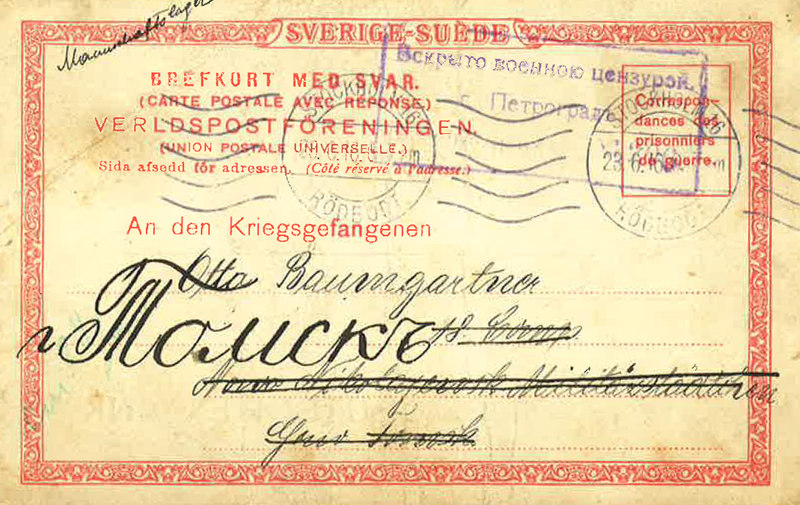 Mannschaftslager
SVERIGE-SUEDE
BREFKORT MED SVAR.
(CARTE POSTALE AVEC RÉPONSE.)
VERLDSPOSTFÖRENINGEN.
(UNION POSTALE UNIVERSELLE.)
Sida afsedd för adressen. (Côté réservé à l'adresse.)
Вскрыто военною цензурой.
г. Петроградъ
Correspon-
dances des
prisonniers
de guerre.
STOCKHOLM 16
RÖDBODT
STOCKHOLM 16
23.6.16
RÖDBODT
An den Kriegsgefangenen
Otto Baumgartner
г Томскъ
18 Comp
Nowo Nikolajewsk Militärstädtchen
Gouv Tomsk